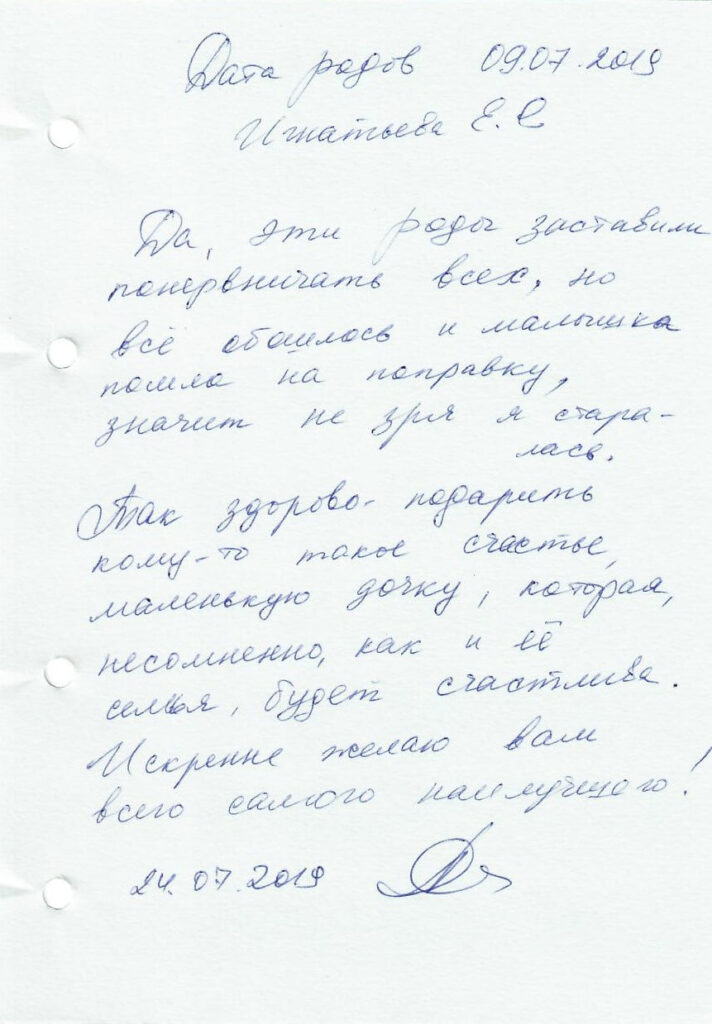 Дата родов 09.07.2019
Игнатьева Е.С
Да, эти роды заставили
понервничать всех, но
всё обошлось и малышка
пошла на поправку,
значит не зря я стара-
лась.
Так здорово- подарить
кому-то такое счастье,
маленькую дочку, которая,
несомненно, как и её
семья, будет счастлива.
Искренне желаю вам
всего самого наилучшего!
24.07.2019